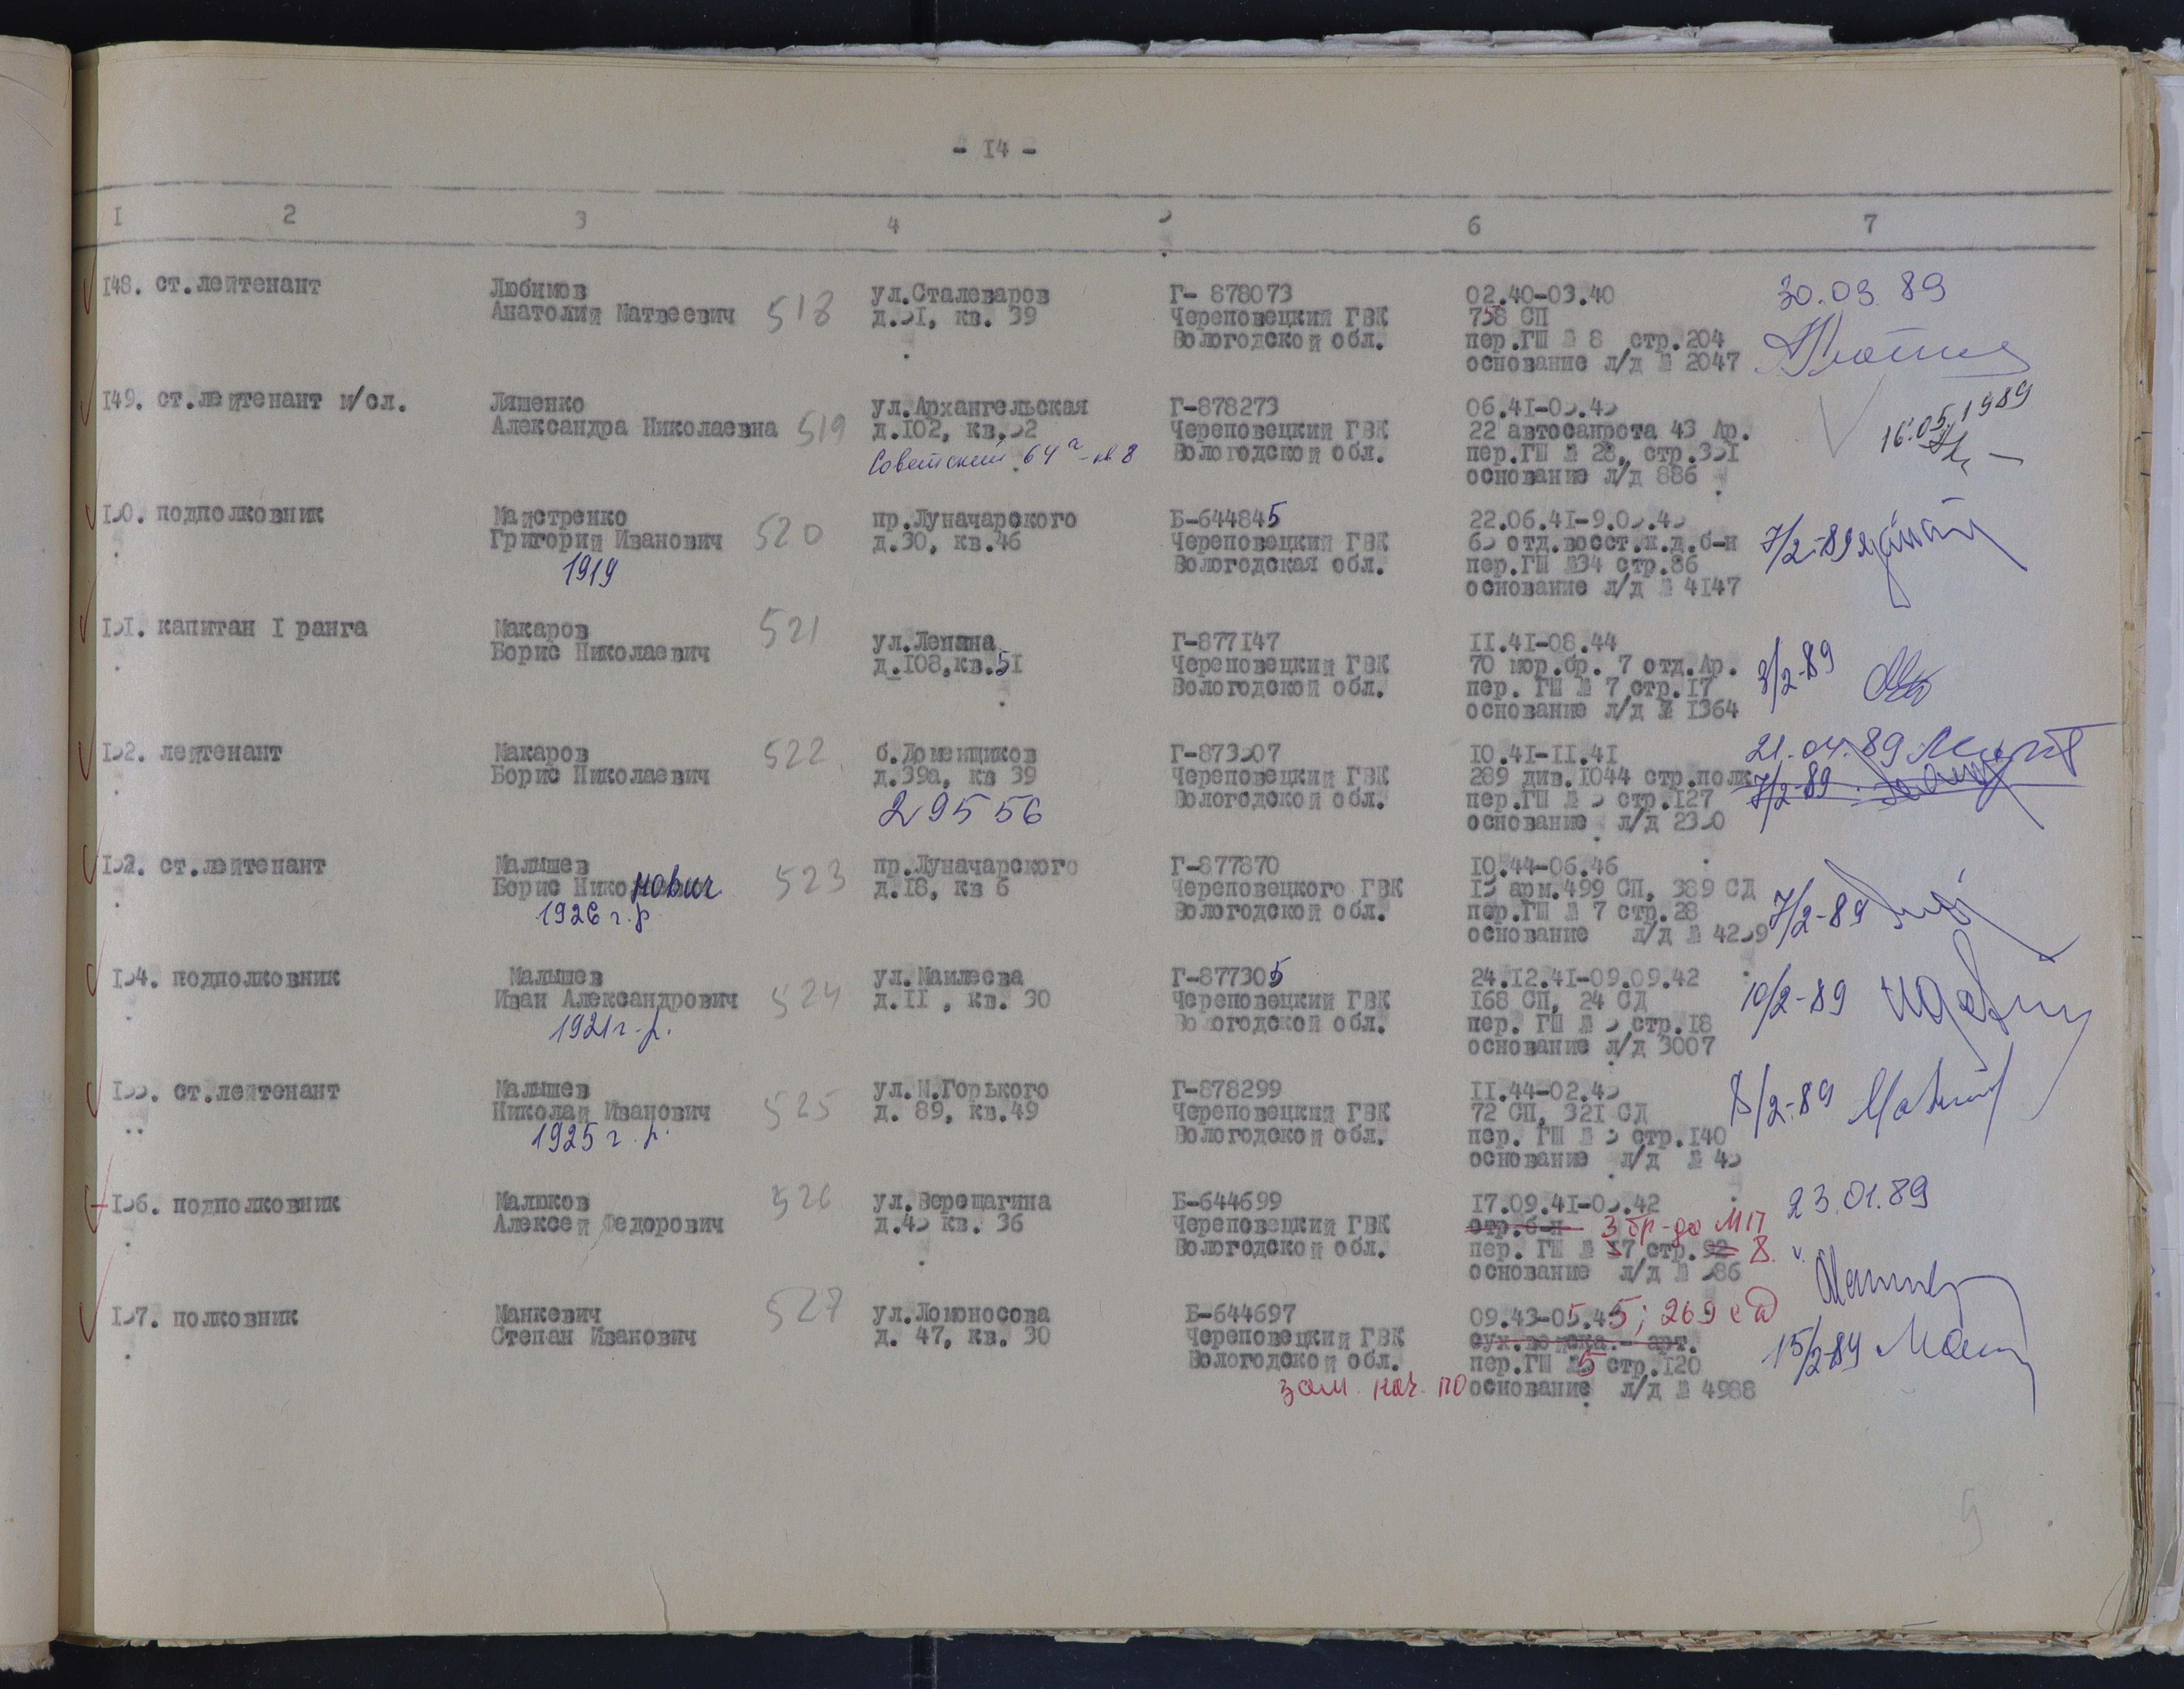 - I4 -
I 2 3 4 5 6 7
I48. ст.лейтенант
Любимов
Анатолий Матвеевич 518
ул.Сталеваров
д.51, кв. 39
Г- 878073
Череповецкий ГВК
Вологодской обл.
02.40-03.40
758 СП
пер.ГШ № 8 стр.204
основание л/д № 2047
30.03.89
I49. ст.лейтенант м/сл.
Ляшенко
Александра Николаевна 519
ул.Архангельская
д.I02, кв.52
Советский 64а - 8
Г-878273
Череповецкий ГВК
Вологодской обл.
06.4I-05.45
22 автосанрота 43 Ар.
пер.ГШ № 28, стр.35I
основание л/д 886
16.05.1989
I50. подполковник
Майстренко
Григорий Иванович 520
1919
пр.Луначарского
д.30, кв.46
Б-644845
Череповецкий ГВК
Вологодская обл.
22.06.4I-9.05.45
65 отд.восст.ж.д.б-н
пер.ГШ №34 стр.86
основание л/д № 4I47
7/2-89
I5I. капитан I ранга
Макаров 521
Борис Николаевич
ул.Ленина
д.I08,кв.5I
Г-877I47
Череповецкий ГВК
Вологодской обл.
II.4I-08.44
70 мор.бр. 7 отд.Ар.
пер. ГШ № 7 стр.I7
основание л/д № I364
3/2-89
I52. лейтенант
Макаров 522
Борис Николаевич
б.Доменщиков
д.39а, кв 39
29556
Г-873507
Череповецкий ГВК
Вологодской обл.
I0.4I-II.4I
289 див.I044 стр.полк
пер.ГШ № 5 стр.I27
основание л/д 2350
21.04.89
7/2-89
I52. ст.лейтенант
Малышев 523
Борис Никонович
1926 г.р
пр.Луначарского
д.I8, кв 6
Г-877870
Череповецкого ГВК
Вологодской обл.
I0.44-06.46
I5 арм.499 СП, 389 СД
пер.ГШ № 7 стр.28
основание л/д № 4259
7/2-89
I54. подполковник
Малышев
Иван Александрович 524
1921 г.р.
ул.Мамлеева
д.II , кв. 30
Г-877305
Череповецкий ГВК
Вологодской обл.
24.I2.4I-09.09.42
I68 СП, 24 СД
пер. ГШ № 5 стр.I8
основание л/д 3007
10/2-89
I55. ст.лейтенант
Малышев
Николай Иванович 525
1925 г.р.
ул.М.Горького
д. 89, кв.49
Г-878299
Череповецкий ГВК
Вологодской обл.
II.44-02.45
72 СП, 32I СД
пер. ГШ № 5 стр.I40
основание л/д № 45
8/2-89
I56. подполковник
Малюков 526
Алексей Федорович
ул.Верещагина
д.45 кв. 36
Б-644699
Череповецкий ГВК
Вологодской обл.
I7.09.4I-05.42
стр.б-н 3 бр-да МП
пер. ГШ № 57 стр.92 8.
основание л/д № 586
23.01.89
I57. полковник
Манкевич 527
Степан Иванович
ул.Ломоносова
д. 47, кв. 30
Б-644697
Череповецкий ГВК
Вологодской обл.
09.43-05.45; 269 сд
сух.войска.- арт.
пер.ГШ №5 стр.I20
зам. нач. по основание л/д № 4988
15/2-89